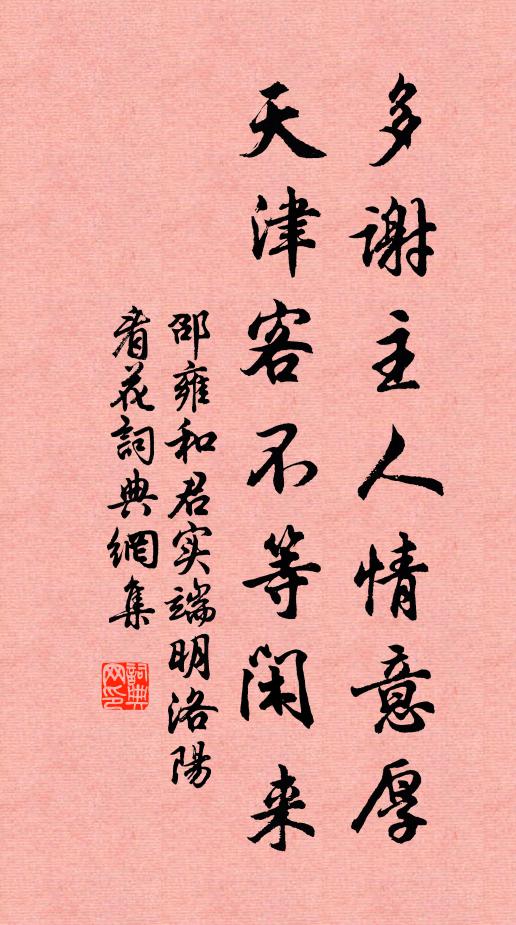 多谢主人情意厚
天津客不等闲来
邵雍和君实端明洛陽
看花詞典網集
詞典网印